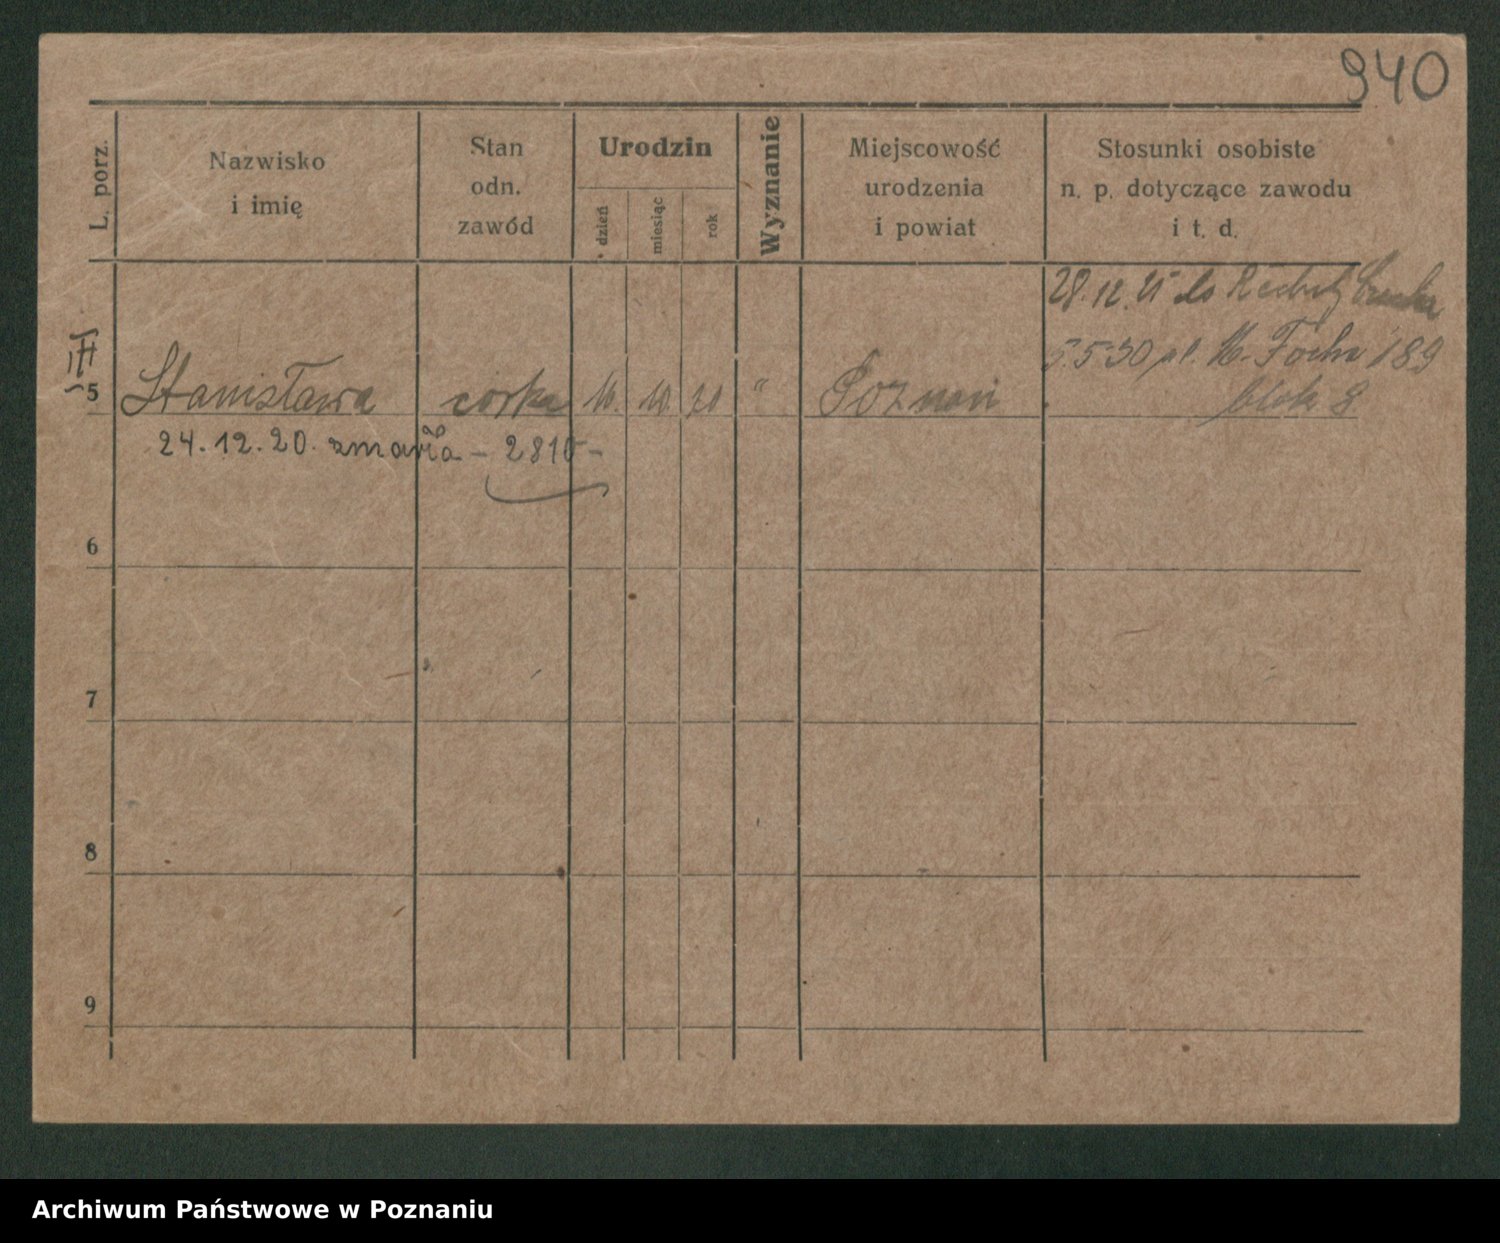 940
L. porz.
Nazwisko
i imię
Stan
odn.
zawód
Urodzin
dzień
miesiąc
rok
Wyznanie
Miejscowość
urodzenia
i powiat
Stosunki osobiste
n. p. dotyczące zawodu
i t. d.
28.12.25 do
5.5.30 pl. M. Focha 189
blok 8
III
5 Stanisława córka 10 20 " Poznań
24.12.20. zmarła - 2810 -
6
7
8
9
Archiwum Państwowe w Poznaniu